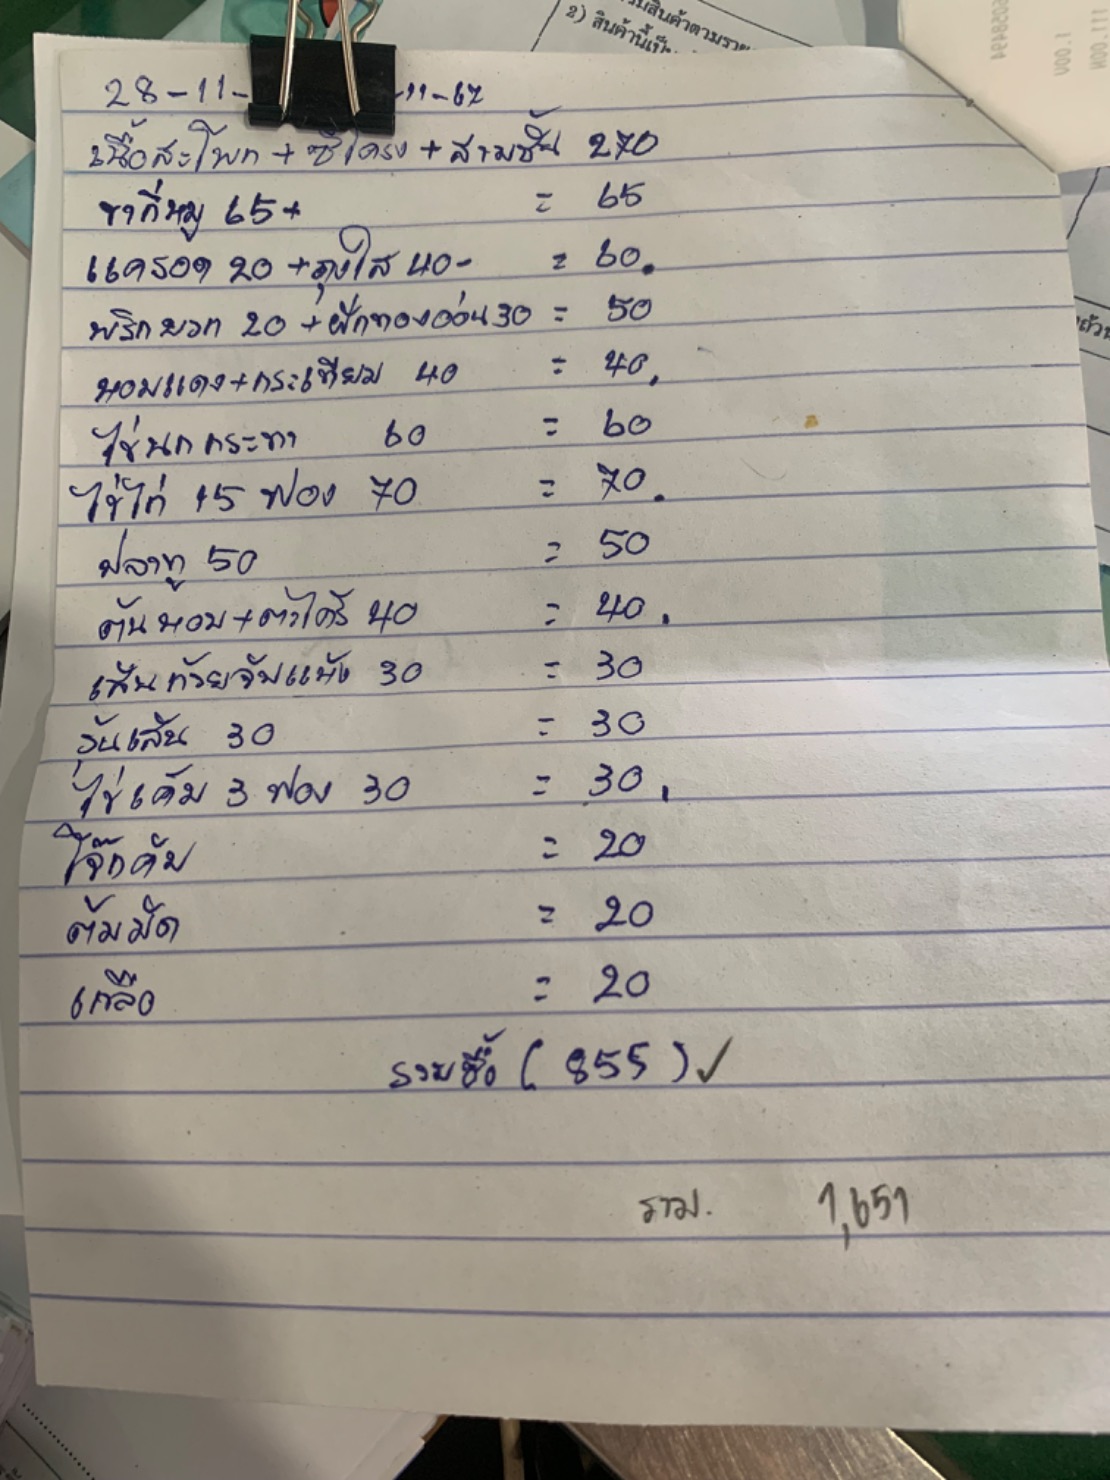 2) สินค้านี้เป็น
28-11- -11-67
เนื้อสะโพก + ซี่โครง + สามชั้น 270
ขากี่หมู 65+ = 65
แครอด 20 + ถุงใส 40- = 60.
พริกหวก 20 + ฝักทองอ่อน 30 = 50
หอมแดง+กระเทียม 40 = 40.
ไข่นกกระทา 60 = 60
ไข่ไก่ 15 ฟอง 70 = 70.
ปลาทู 50 = 50
ต้นหอม+ตะไคร้ 40 = 40.
เส้นก๋วยจั๊บแห้ง 30 = 30
วุ้นเส้น 30 = 30
ไข่เค็ม 3 ฟอง 30 = 30.
โจ๊กคัพ = 20
ต้มมัด = 20
เกลือ = 20
รวมซื้อ ( 855 ) ✓
รวม. 1,651